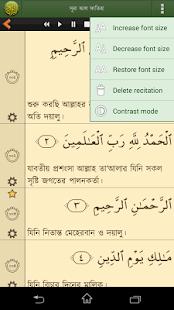 সূরা আল ফাতিহা
Increase font size
Decrease font size
Restore font size
Delete recitation
Contrast mode
শুরু করছি আল্লাহর
অতি দয়ালু।
ٱلۡحَمۡدُ لِلَّهِ رَبِّ ٱلۡعَٰلَمِينَ ﴿٢﴾
যাবতীয় প্রশংসা আল্লাহ তা'আলার যিনি সকল
সৃষ্টি জগতের পালনকর্তা।
ٱلرَّحۡمَٰنِ ٱلرَّحِيمِ ﴿٣﴾
যিনি নিতান্ত মেহেরবান ও দয়ালু।
مَٰلِكِ يَوۡمِ ٱلدِّينِ ﴿٤﴾
যিনি বিচার দিনের মালিক।